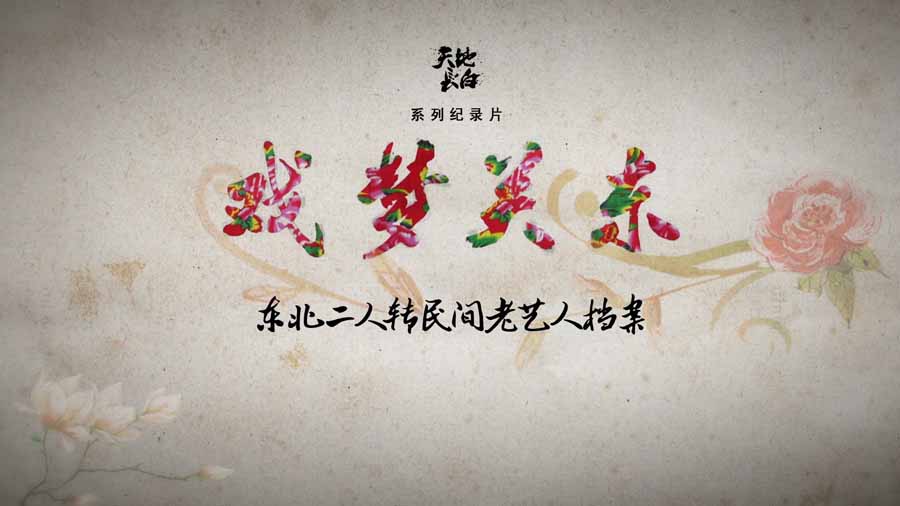 天地
長白
系列纪录片
戏梦关东
东北二人转民间老艺人档案